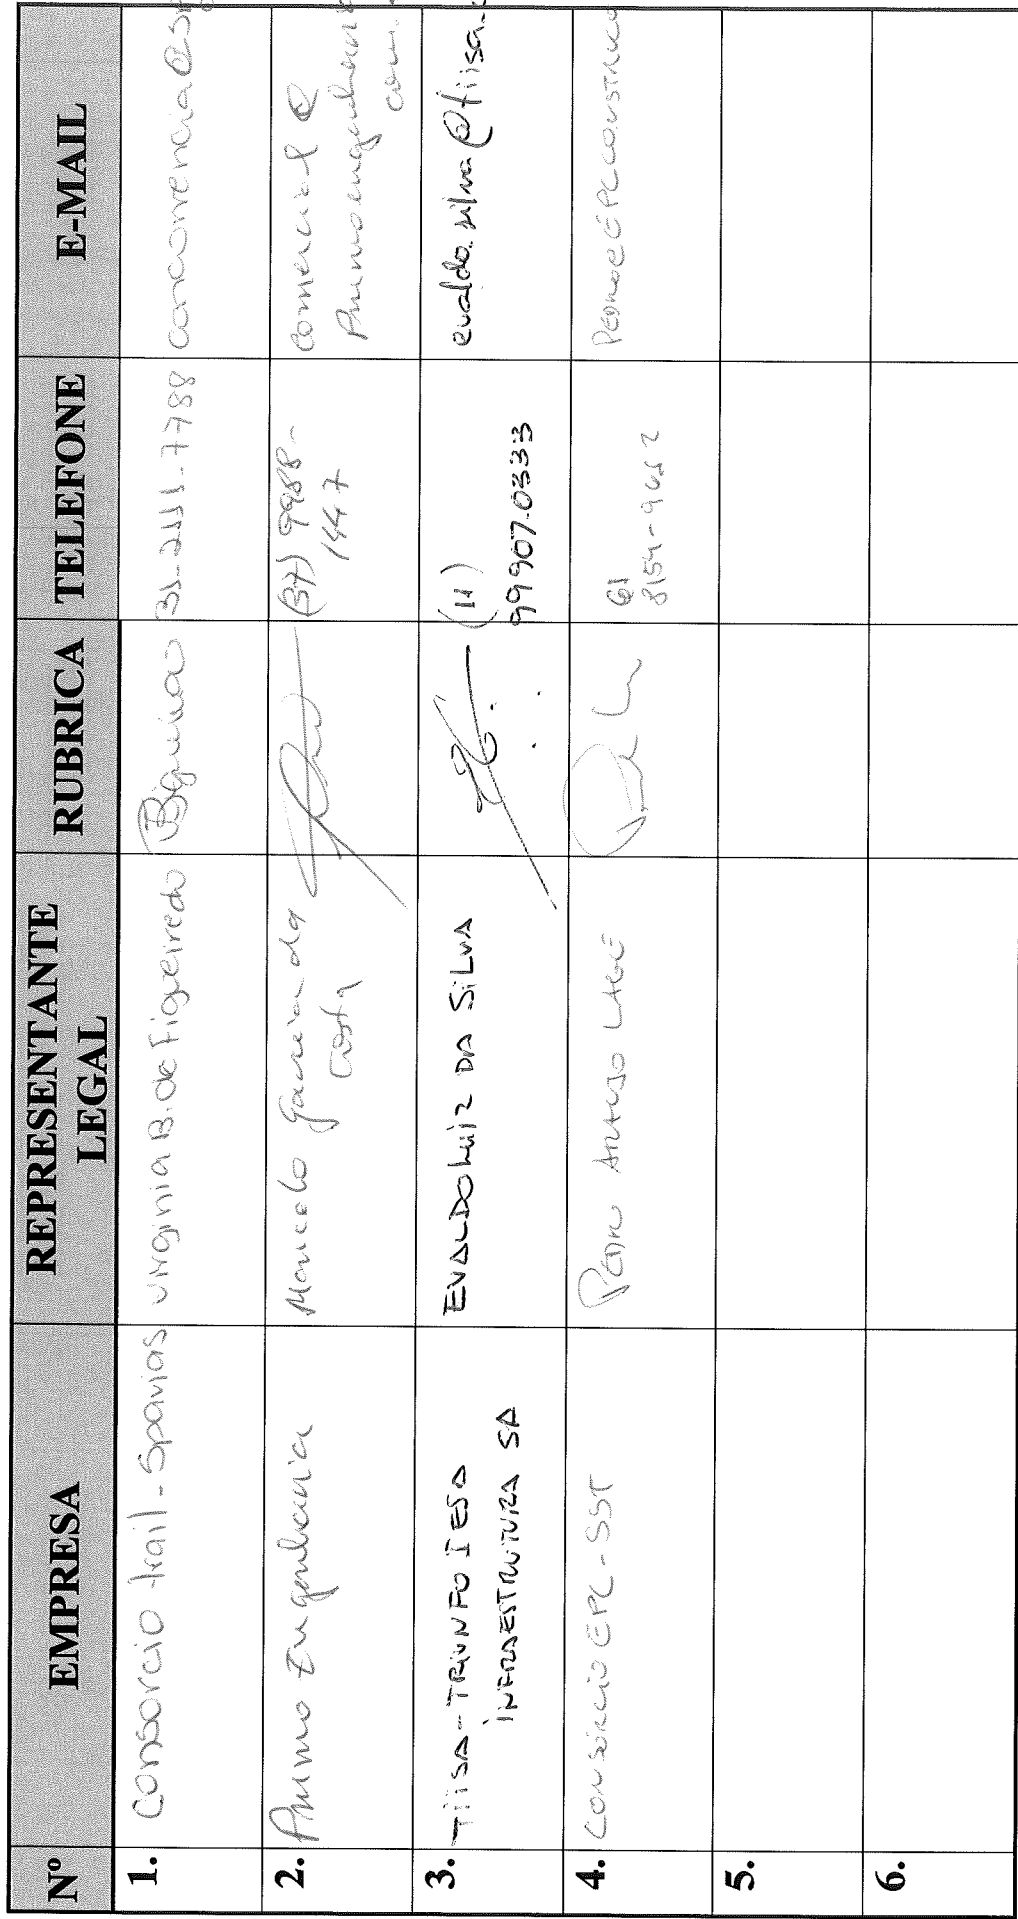 Nº EMPRESA REPRESENTANTE LEGAL RUBRICA TELEFONE E-MAIL
1. Consorcio trail-Spavias Virginia B. de Figueiredo 31-2111-7788
2. Primo Engenharia Marcelo Garcia da Costa (37) 9988-1447 comercial@
3. TIISA-TRIUNFO IESA INFRAESTRUTURA SA EVALDO Luiz DA SiLVA (11) 99907-0333 evaldo.silva@tiisa.
4. CONSÓRCIO EPC-SST PEDRO LAGE 61 8154-9652
5.
6.